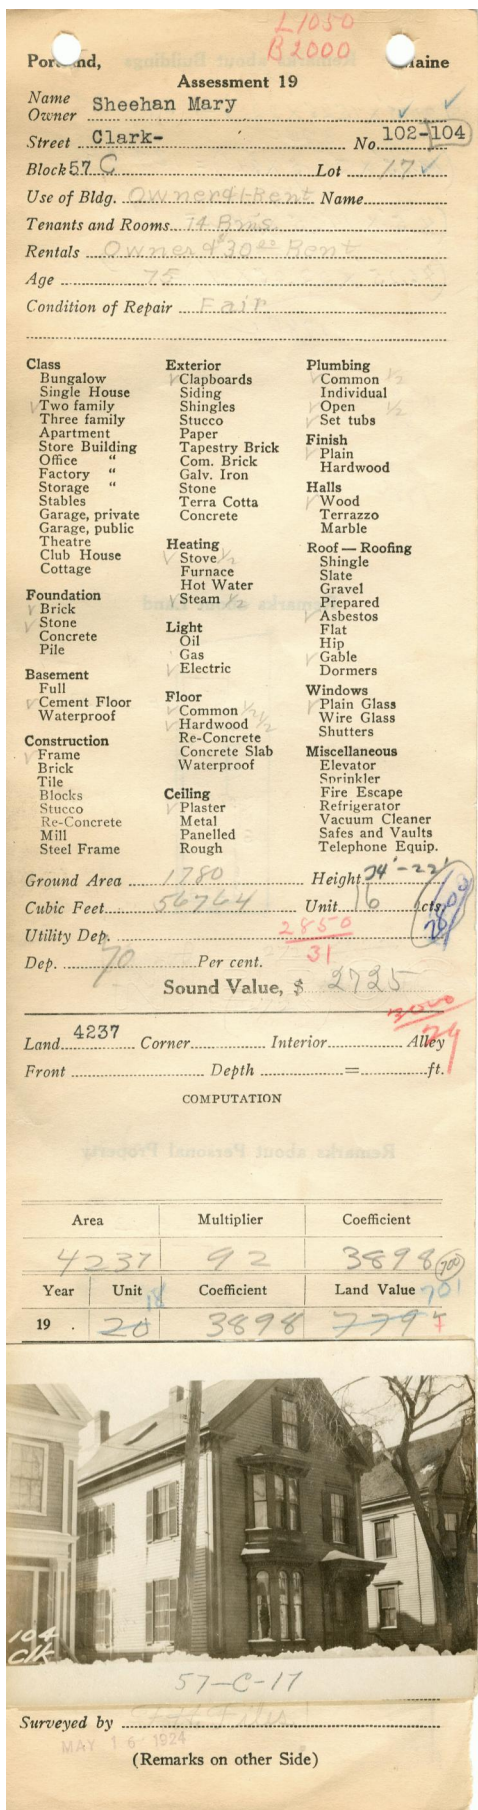 L1050
B2000
Portland, Maine
Assessment 19
Name
Owner Sheehan Mary
Street Clark- No. 102-104
Block 57 C Lot 17
Use of Bldg. Owner & 1-Rent Name
Tenants and Rooms 14 Rms.
Rentals Owner & $30.00 Rent
Age 75
Condition of Repair Fair
Class
Bungalow
Single House
✓ Two family
Three family
Apartment
Store Building
Office "
Factory "
Storage "
Stables
Garage, private
Garage, public
Theatre
Club House
Cottage
Foundation
✓ Brick
✓ Stone
Concrete
Pile
Basement
Full
✓ Cement Floor
Waterproof
Construction
✓ Frame
Brick
Tile
Blocks
Stucco
Re-Concrete
Mill
Steel Frame
Exterior
✓ Clapboards
Siding
Shingles
Stucco
Paper
Tapestry Brick
Com. Brick
Galv. Iron
Stone
Terra Cotta
Concrete
Heating
✓ Stove ½
Furnace
Hot Water
✓ Steam ½
Light
Oil
Gas
✓ Electric
Floor
✓ Common ½
✓ Hardwood ½
Re-Concrete
Concrete Slab
Waterproof
Ceiling
✓ Plaster
Metal
Panelled
Rough
Plumbing
✓ Common ½
Individual
✓ Open ½
✓ Set tubs
Finish
✓ Plain
Hardwood
Halls
✓ Wood
Terrazzo
Marble
Roof — Roofing
Shingle
Slate
Gravel
Prepared
✓ Asbestos
Flat
Hip
✓ Gable
Dormers
Windows
✓ Plain Glass
Wire Glass
Shutters
Miscellaneous
Elevator
Sprinkler
Fire Escape
Refrigerator
Vacuum Cleaner
Safes and Vaults
Telephone Equip.
Ground Area 1780 Height 34'-22'
Cubic Feet 56764 Unit 16 cts.
Utility Dep. 2850
31
Dep. 70 Per cent.
Sound Value, $ 2725
Land 4237 Corner Interior Alley
Front Depth = ft.
COMPUTATION
Area Multiplier Coefficient
4237 92 3898 700
Year Unit 18 Coefficient Land Value 701
19 . 20 3898 779
104
Clk
57-C-17
Surveyed by
MAY 16 1924
(Remarks on other Side)